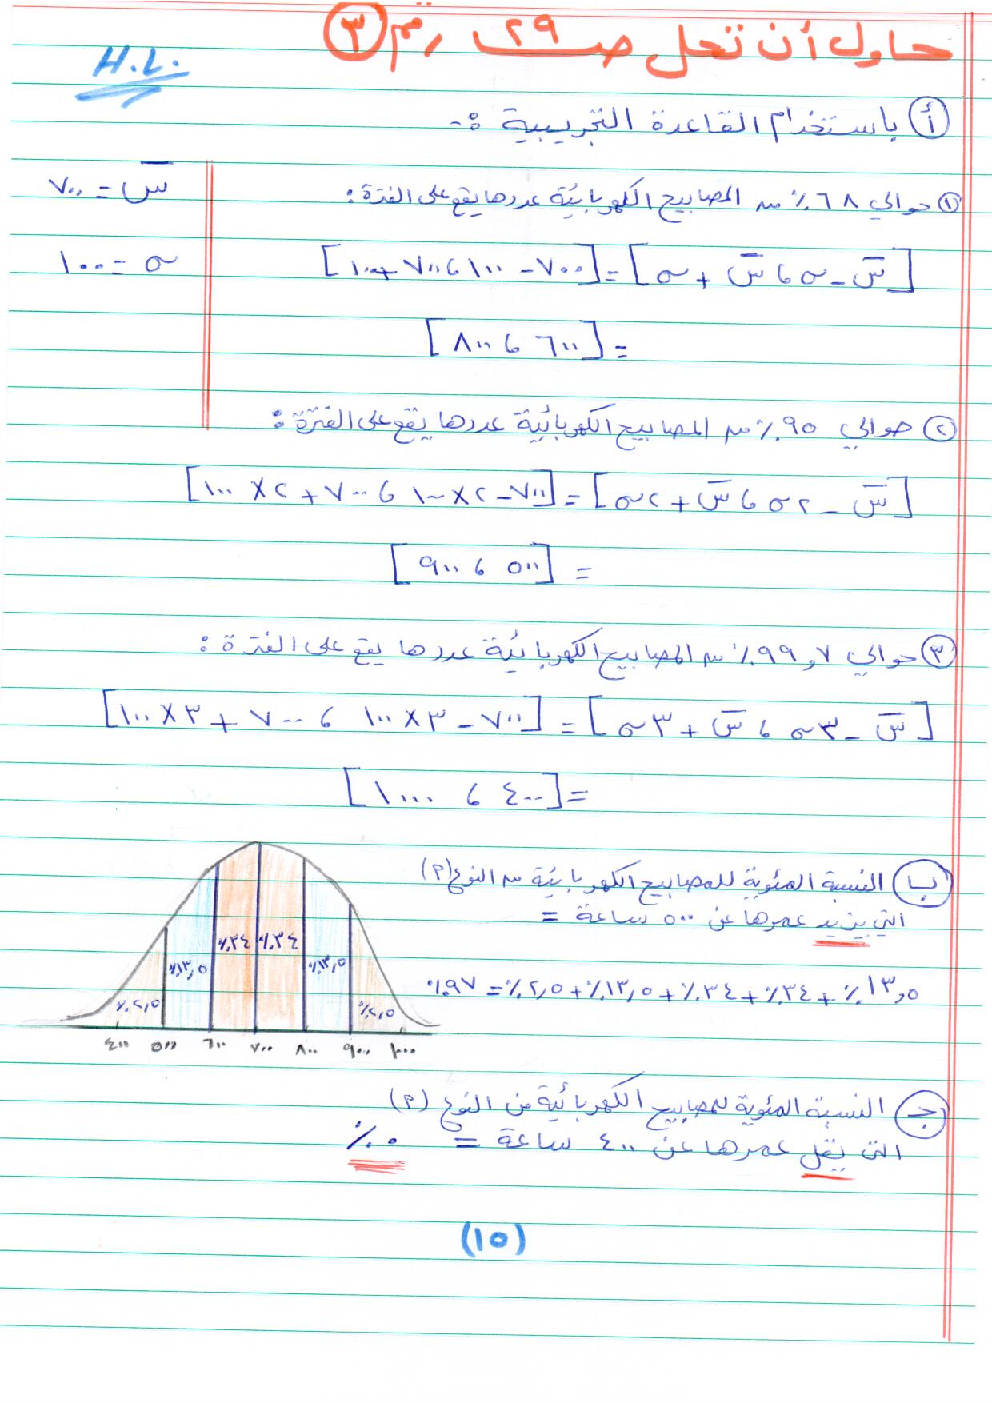 حاول أن تحل صـ ٢٩ رقم ③
H.L.
أ باستخدام القاعدة التجريبية :-
س̄ = ٧٠٠
① حوالي ٦٨٪ من المصابيح الكهربائية عددها يقع على الفترة:
σ = ١٠٠
[س̄ - σ ، س̄ + σ] = [٧٠٠ - ١٠٠ ، ٧٠٠ + ١٠٠]
= [٦٠٠ ، ٨٠٠]
② حوالي ٩٥٪ من المصابيح الكهربائية عددها يقع على الفترة:
[س̄ - ٢σ ، س̄ + ٢σ] = [٧٠٠ - ٢ × ١٠٠ ، ٧٠٠ + ٢ × ١٠٠]
= [٥٠٠ ، ٩٠٠]
③ حوالي ٩٩,٧٪ من المصابيح الكهربائية عددها يقع على الفترة:
[س̄ - ٣σ ، س̄ + ٣σ] = [٧٠٠ - ٣ × ١٠٠ ، ٧٠٠ + ٣ × ١٠٠]
= [٤٠٠ ، ١٠٠٠]
ب النسبة المئوية للمصابيح الكهربائية من النوع (٢)
التي يزيد عمرها عن ٥٠٠ ساعة =
١٣,٥٪ + ٣٤٪ + ٣٤٪ + ١٣,٥٪ + ٢,٥٪ = ٩٧٪
٢,٥٪ ١٣,٥٪ ٣٤٪ ٣٤٪ ١٣,٥٪ ٢,٥٪
٤٠٠ ٥٠٠ ٦٠٠ ٧٠٠ ٨٠٠ ٩٠٠ ١٠٠٠
جـ النسبة المئوية للمصابيح الكهربائية من النوع (٢)
التي يقل عمرها عن ٤٠٠ ساعة = ٠٪
(١٥)